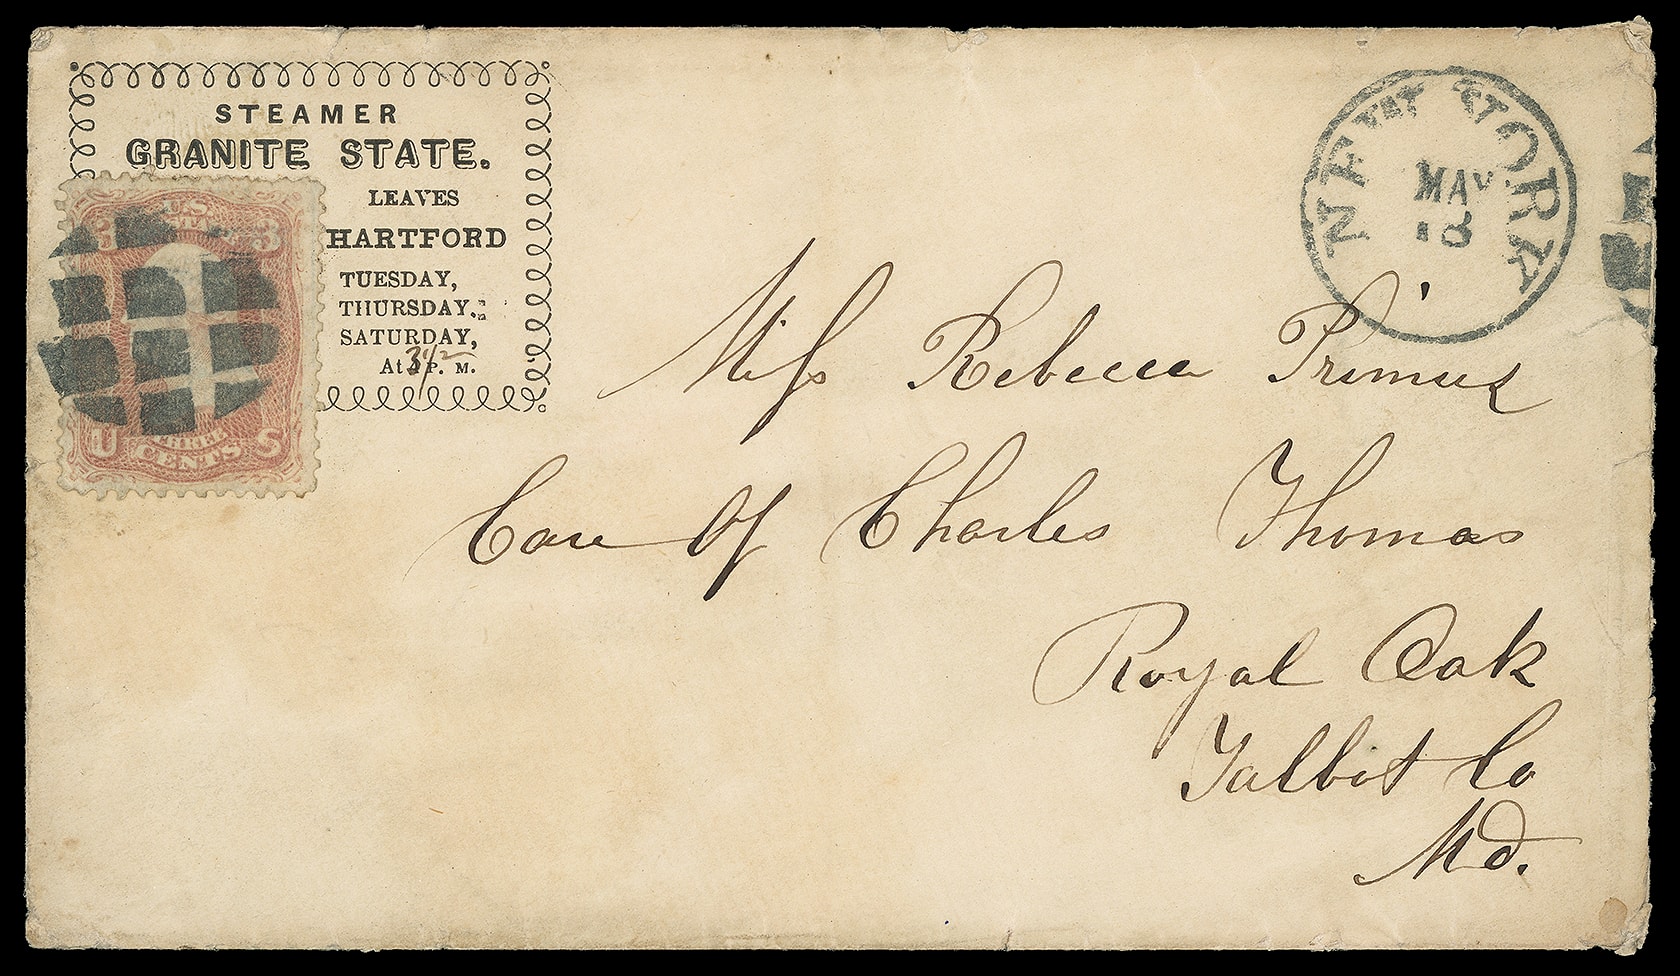 STEAMER
GRANITE STATE.
LEAVES
HARTFORD
TUESDAY,
THURSDAY,
SATURDAY,
At 3 1/2 P. M.
U.S.
3
THREE
CENTS
U S
NEW YORK
MAY
18
Miss Rebecca Primus
Care Of Charles Thomas
Royal Oak
Talbot Co
Md.